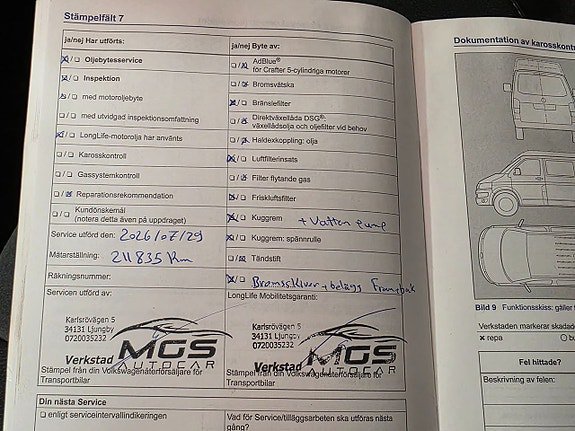 Stämpelfält 7
ja/nej Har utförts:
Oljebytesservice
Inspektion
med motoroljebyte
med utvidgad inspektionsomfattning
LongLife-motorolja har använts
Karosskontroll
Gassystemkontroll
Reparationsrekommendation
Kundönskemål
(notera detta även på uppdraget)
Service utförd den: 2026/07/29
Mätarställning: 211835 Km
Räkningsnummer:
Servicen utförd av:
Karlsrovägen 5
34131 Ljungby
0720035232
Verkstad MGS
AUTOCAR
Stämpel från din Volkswagenåterförsäljare för
Transportbilar
ja/nej Byte av:
AdBlue®
för Crafter 5-cylindriga motorer
Bromsvätska
Bränslefilter
Direktväxellåda DSG®:
växellådsolja och oljefilter vid behov
Haldexkoppling: olja
Luftfilterinsats
Filter flytande gas
Friskluftsfilter
Kuggrem + Vatten pump
Kuggrem: spännrulle
Tändstift
Bromsskivor + belägg Fram+bak
LongLife Mobilitetsgaranti:
Karlsrovägen 5
34131 Ljungby
0720035232
Verkstad MGS
AUTOCAR
Stämpel från din Volkswagenåterförsäljare för
Transportbilar
Din nästa Service
enligt serviceintervallindikeringen
Vad för Service/tilläggsarbeten ska utföras nästa
gång?
Dokumentation av karosskont
Bild 9 Funktionsskiss: gäller
Verkstaden markerar skadad
x repa
Fel hittade?
Beskrivning av felen: